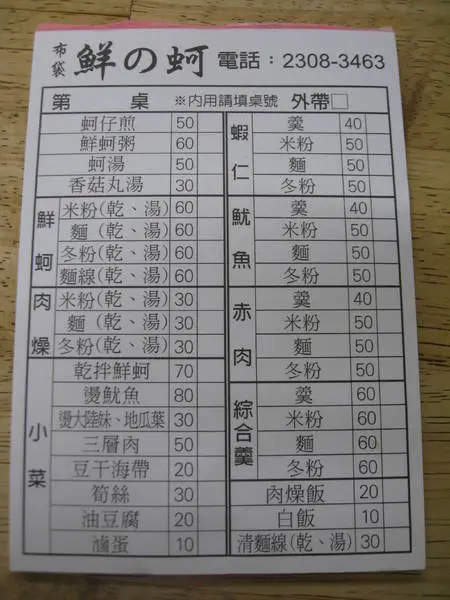 布袋 鮮の蚵 電話：2308-3463
第 桌 ※內用請填桌號 外帶□
蚵仔煎 50
鮮蚵粥 60
蚵湯 50
香菇丸湯 30
鮮蚵
米粉(乾、湯) 60
麵(乾、湯) 60
冬粉(乾、湯) 60
麵線(乾、湯) 60
肉燥
米粉(乾、湯) 30
麵(乾、湯) 30
冬粉(乾、湯) 30
小菜
乾拌鮮蚵 70
燙魷魚 80
燙大陸妹、地瓜葉 30
三層肉 50
豆干海帶 20
筍絲 30
油豆腐 20
滷蛋 10
蝦仁
羹 40
米粉 50
麵 50
冬粉 50
魷魚
羹 40
米粉 50
麵 50
冬粉 50
赤肉
羹 40
米粉 50
麵 50
冬粉 50
綜合羹
羹 60
米粉 60
麵 60
冬粉 60
肉燥飯 20
白飯 10
清麵線(乾、湯) 30